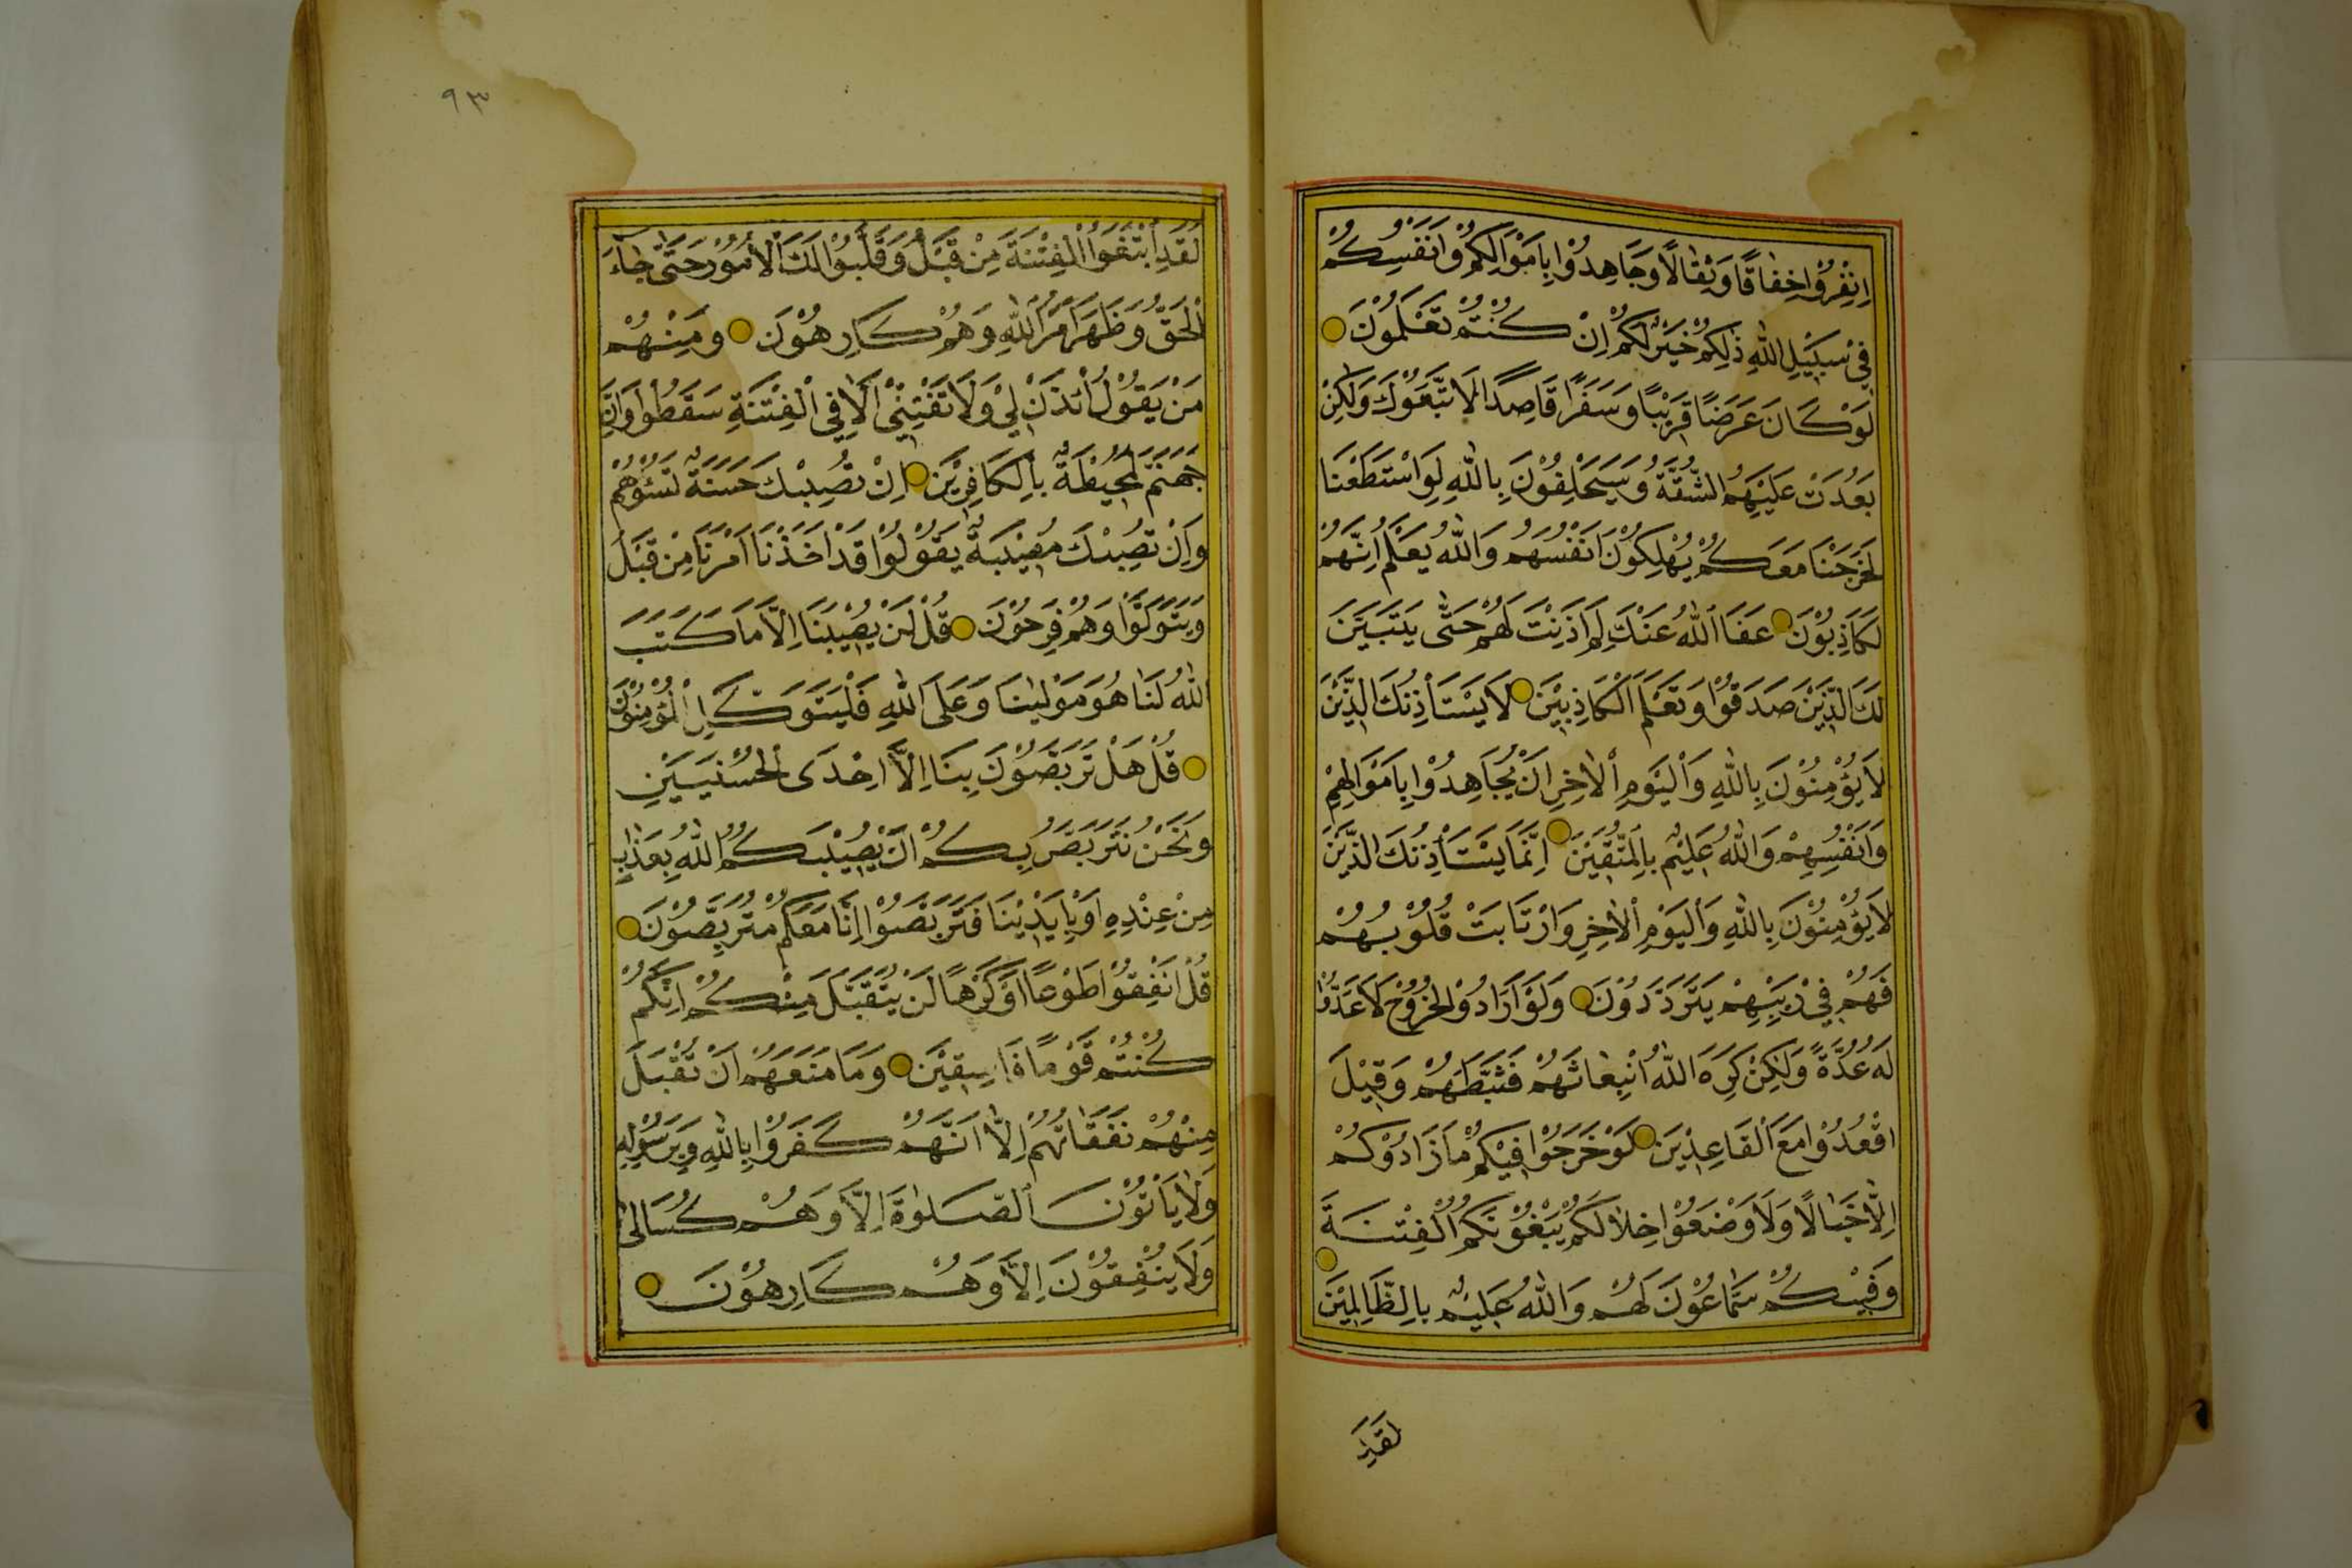 اِنْفِرُوْا خِفَافًا وَثِقَالًا وَجَاهِدُوْا بِاَمْوَالِكُمْ وَاَنْفُسِكُمْ
فِيْ سَبِيْلِ اللّٰهِ ذٰلِكُمْ خَيْرٌ لَكُمْ اِنْ كُنْتُمْ تَعْلَمُوْنَ
لَوْ كَانَ عَرَضًا قَرِيْبًا وَسَفَرًا قَاصِدًا لَاتَّبَعُوْكَ وَلٰكِنْ
بَعُدَتْ عَلَيْهِمُ الشُّقَّةُ وَسَيَحْلِفُوْنَ بِاللّٰهِ لَوِ اسْتَطَعْنَا
لَخَرَجْنَا مَعَكُمْ يُهْلِكُوْنَ اَنْفُسَهُمْ وَاللّٰهُ يَعْلَمُ اِنَّهُمْ
لَكَاذِبُوْنَ عَفَا اللّٰهُ عَنْكَ لِمَ اَذِنْتَ لَهُمْ حَتّٰى يَتَبَيَّنَ
لَكَ الَّذِيْنَ صَدَقُوْا وَتَعْلَمَ الْكَاذِبِيْنَ لَا يَسْتَأْذِنُكَ الَّذِيْنَ
لَا يُؤْمِنُوْنَ بِاللّٰهِ وَالْيَوْمِ الْاٰخِرِ اَنْ يُجَاهِدُوْا بِاَمْوَالِهِمْ
وَاَنْفُسِهِمْ وَاللّٰهُ عَلِيْمٌ بِالْمُتَّقِيْنَ اِنَّمَا يَسْتَأْذِنُكَ الَّذِيْنَ
لَا يُؤْمِنُوْنَ بِاللّٰهِ وَالْيَوْمِ الْاٰخِرِ وَارْتَابَتْ قُلُوْبُهُمْ
فَهُمْ فِيْ رَيْبِهِمْ يَتَرَدَّدُوْنَ وَلَوْ اَرَادُوا الْخُرُوْجَ لَاَعَدُّوْا
لَهُ عُدَّةً وَلٰكِنْ كَرِهَ اللّٰهُ انْبِعَاثَهُمْ فَثَبَّطَهُمْ وَقِيْلَ
اقْعُدُوْا مَعَ الْقَاعِدِيْنَ لَوْ خَرَجُوْا فِيْكُمْ مَا زَادُوْكُمْ
اِلَّا خَبَالًا وَلَاَوْضَعُوْا خِلَالَكُمْ يَبْغُوْنَكُمُ الْفِتْنَةَ
وَفِيْكُمْ سَمَّاعُوْنَ لَهُمْ وَاللّٰهُ عَلِيْمٌ بِالظَّالِمِيْنَ
لَقَدِ
٩٣
لَقَدِ ابْتَغَوُا الْفِتْنَةَ مِنْ قَبْلُ وَقَلَّبُوْا لَكَ الْاُمُوْرَ حَتّٰى جَاءَ
الْحَقُّ وَظَهَرَ اَمْرُ اللّٰهِ وَهُمْ كَارِهُوْنَ وَمِنْهُمْ
مَنْ يَقُوْلُ ائْذَنْ لِيْ وَلَا تَفْتِنِّيْ اَلَا فِي الْفِتْنَةِ سَقَطُوْا وَاِنَّ
جَهَنَّمَ لَمُحِيْطَةٌ بِالْكَافِرِيْنَ اِنْ تُصِبْكَ حَسَنَةٌ تَسُؤْهُمْ
وَاِنْ تُصِبْكَ مُصِيْبَةٌ يَقُوْلُوْا قَدْ اَخَذْنَا اَمْرَنَا مِنْ قَبْلُ
وَيَتَوَلَّوْا وَهُمْ فَرِحُوْنَ قُلْ لَنْ يُصِيْبَنَا اِلَّا مَا كَتَبَ
اللّٰهُ لَنَا هُوَ مَوْلٰينَا وَعَلَى اللّٰهِ فَلْيَتَوَكَّلِ الْمُؤْمِنُوْنَ
قُلْ هَلْ تَرَبَّصُوْنَ بِنَا اِلَّا اِحْدَى الْحُسْنَيَيْنِ
وَنَحْنُ نَتَرَبَّصُ بِكُمْ اَنْ يُصِيْبَكُمُ اللّٰهُ بِعَذَابٍ
مِنْ عِنْدِهِ اَوْ بِاَيْدِيْنَا فَتَرَبَّصُوْا اِنَّا مَعَكُمْ مُتَرَبِّصُوْنَ
قُلْ اَنْفِقُوْا طَوْعًا اَوْ كَرْهًا لَنْ يُتَقَبَّلَ مِنْكُمْ اِنَّكُمْ
كُنْتُمْ قَوْمًا فَاسِقِيْنَ وَمَا مَنَعَهُمْ اَنْ تُقْبَلَ
مِنْهُمْ نَفَقَاتُهُمْ اِلَّا اَنَّهُمْ كَفَرُوْا بِاللّٰهِ وَبِرَسُوْلِهِ
وَلَا يَأْتُوْنَ الصَّلٰوةَ اِلَّا وَهُمْ كُسَالٰى
وَلَا يُنْفِقُوْنَ اِلَّا وَهُمْ كَارِهُوْنَ